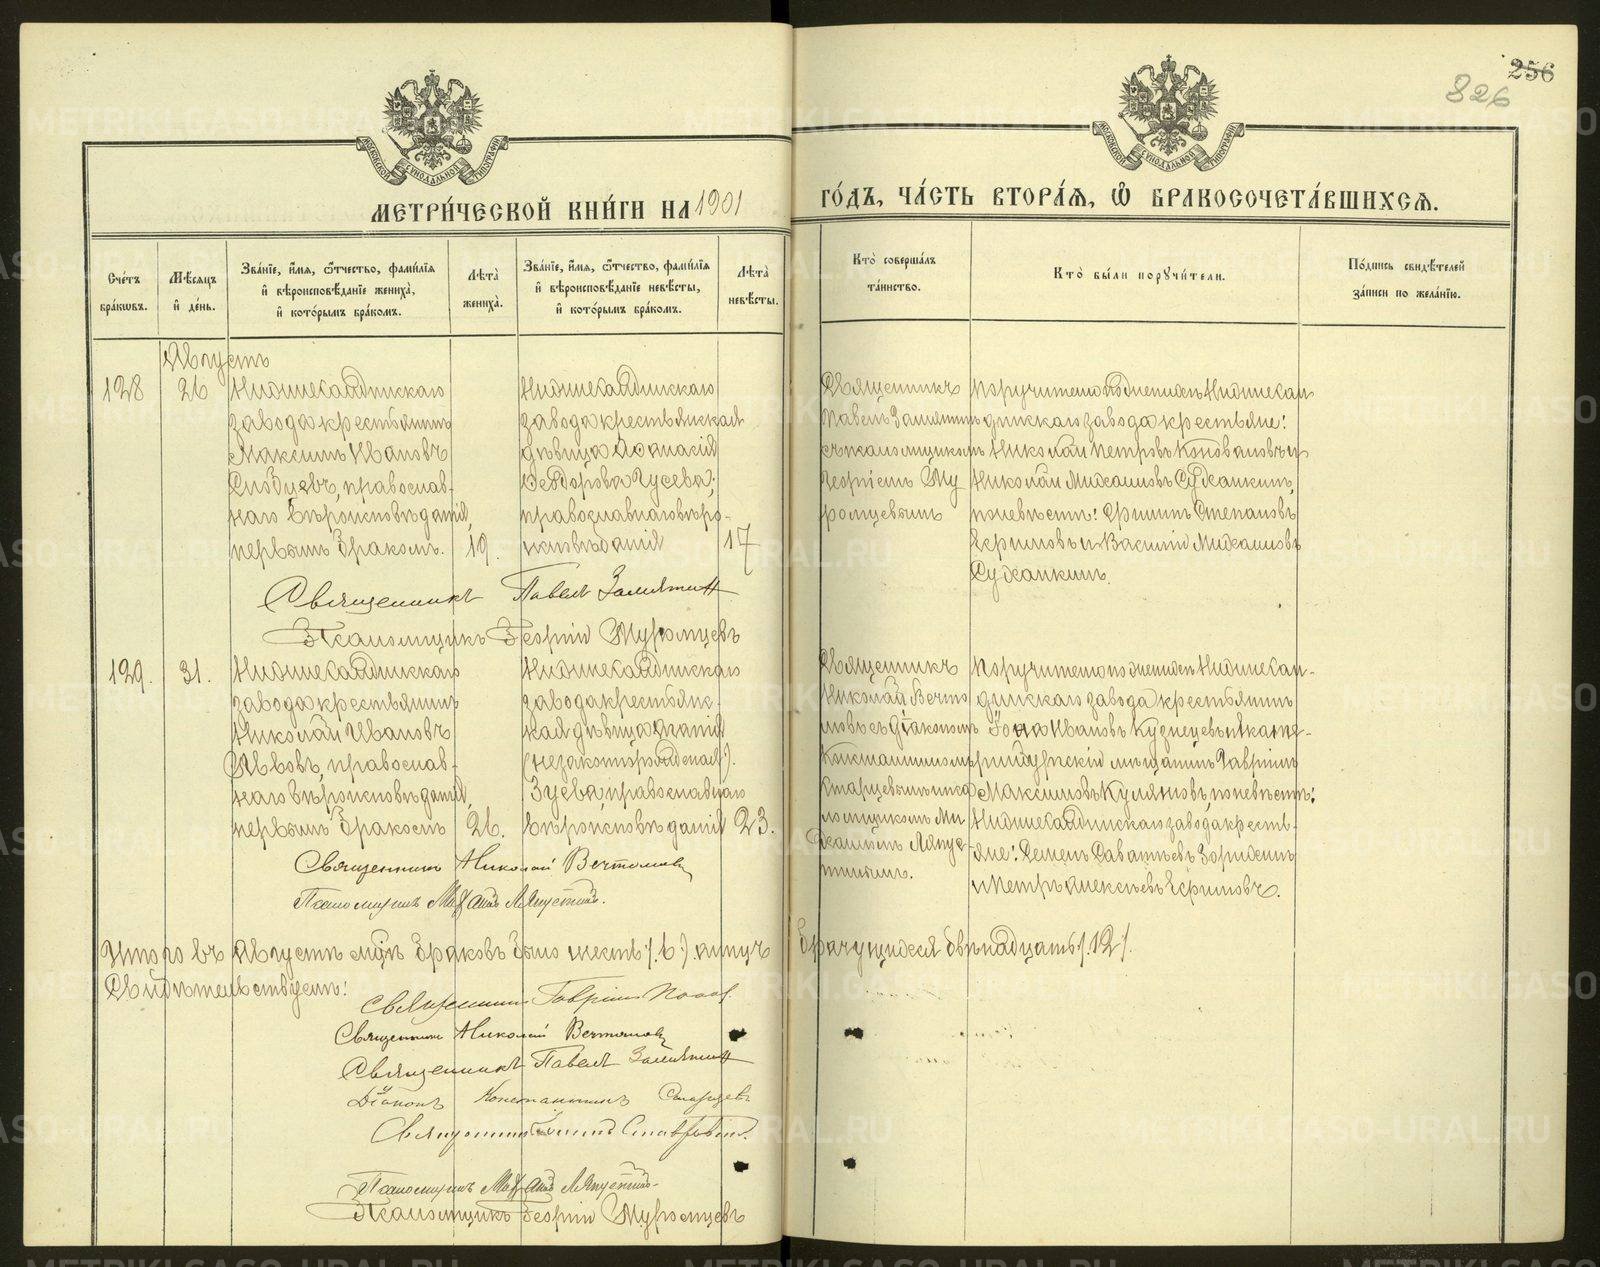 256
826
МЕТРИ́ЧЕСКОЙ КНИ́ГИ НА 1901
ГО́ДЪ, ЧА́СТЬ ВТОРА́Я, Ѽ БРАКОСОЧЕТА́ВШИХСЯ.
Сче́тъ бра́кѡвъ.
Мѣ́сяцъ и҆ де́нь.
Зва́нїе, и҆́мя, ѻ҆́тчество, фами́лїя
и҆ вѣроисповѣ́данїе жениха̀,
и҆ кото́рымъ бра́комъ.
Лѣта̀ жениха̀.
Зва́нїе, и҆́мя, ѻ҆́тчество, фами́лїя
и҆ вѣроисповѣ́данїе невѣ́сты,
и҆ кото́рымъ бра́комъ.
Лѣта̀ невѣ́сты.
Кто̀ соверша́лъ
та́инство.
Кто̀ бы́ли поручи́тели.
По́дпись свидѣ́телей
за́писи по жела́нїю.
Августъ
128
26
Нижнесалдинскаго
завода крестьянинъ
Максимъ Ивановъ
православ-
наго вѣроисповѣданія,
первымъ бракомъ.
19.
Нижнесалдинскаго
завода крестьянская
дѣвица Аѳанасія
Ѳедорова Гусева,
православнаго вѣро-
исповѣданія
17
Священникъ
Павелъ Замятинъ
съ псаломщикомъ
Георгіемъ Му
ромцевымъ
Поручители по женихѣ: Нижнесал
динскаго завода крестьяне:
Николай Петровъ Коновановъ и
Николай Михаиловъ Суханкинъ,
по невѣстѣ: Ефимъ Степановъ
Ефимовъ и Василій Михаиловъ
Суханкинъ.
Священникъ Павелъ Замятинъ
Псаломщикъ Георгій Муромцевъ
129.
31.
Нижнесалдинскаго
завода крестьянинъ
Николай Ивановъ
Львовъ, православ-
наго вѣроисповѣданія,
первымъ бракомъ
26.
Нижнесалдинскаго
завода крестьянс-
кая дѣвица
(незаконнорожденная).
Зуева, православнаго
вѣроисповѣданія
23.
Священникъ
Николай Вечто
мовъ съ діакономъ
Константиномъ
Старцевымъ и пса
ломщикомъ Ми
хаиломъ Ляпус-
тинымъ.
Поручители по женихѣ: Нижнесал-
динскаго завода крестьянинъ
Іона Ивановъ Кузнецовъ и Екате-
ринбургскій мѣщанинъ Гавріилъ
Максимовъ Куляновъ, по невѣстѣ:
Нижнесалдинскаго завода кресть-
яне: Семенъ Савватѣевъ Зорихинъ
и Петръ Алексѣевъ Ефимовъ.
Священникъ Николай Вечтомовъ
Псаломщикъ Михаилъ Ляпустинъ.
Итого въ Августѣ мцѣ браковъ было шесть (6). лицъ брачущихся двѣнадцать (12).
Свидѣтельствуемъ:
Священникъ Гавріилъ Попов.
Священникъ Николай Вечтомовъ
Священникъ Павелъ Замятинъ
Діаконъ Константинъ Старцевъ
Священникъ
Псаломщикъ Михаилъ Ляпустинъ
Псаломщикъ Георгій Муромцевъ
METRIKI.GASO-URAL.RU